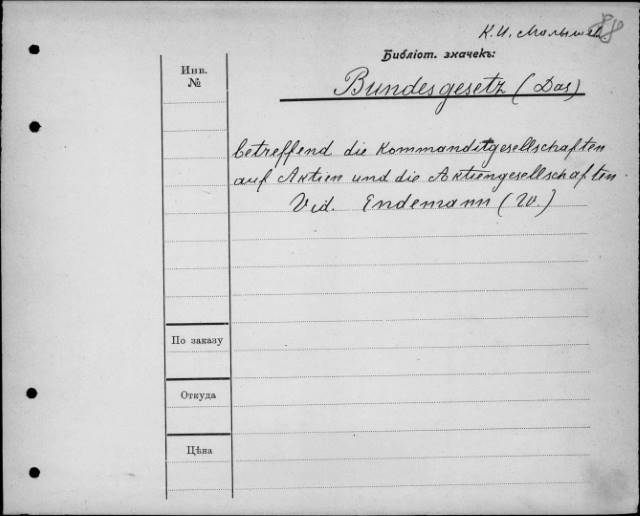 К. И. Малышев
88
Библіот. значекъ:
Инв.
№
Bundesgesetz (Das)
betreffend die Kommanditgesellschaften
auf Aktien und die Aktiengesellschaften.
Vid. Endemann (W.)
По заказу
Откуда
Цѣна